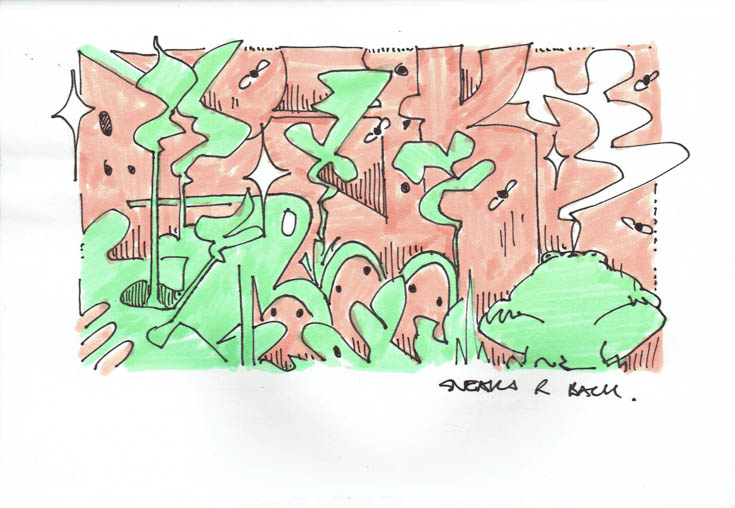 SNEAKS R BACK.